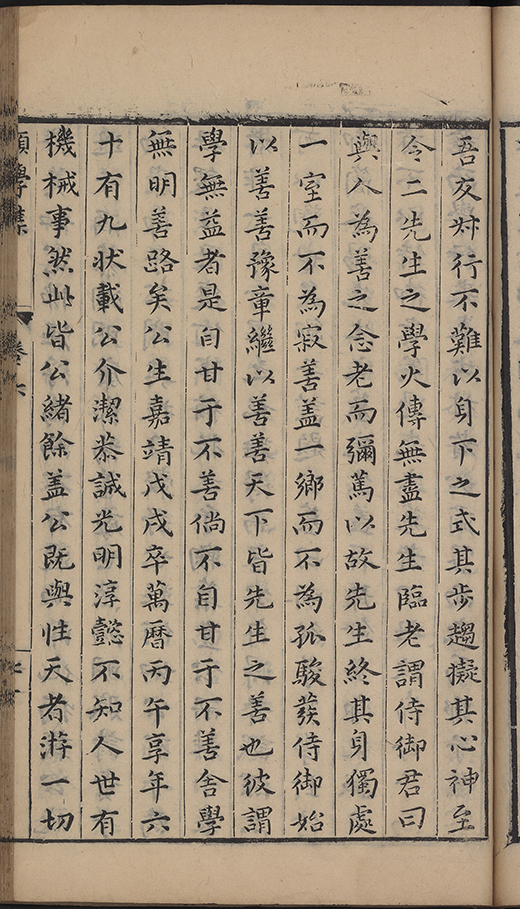 吾友𡬶行不難以身下之式其步趨凝其心神至
令二先生之學火傳無盡先生臨老謂侍御君曰
與人為善之念老而彌篤以故先生終其身獨處
一室而不為寂善盖一鄉而不為孤駿發侍御始
以善善豫章繼以善善天下皆先生之善也彼謂
學無益者是自甘于不善倘不自甘于不善舍學
無明善路矣公生嘉靖戊戌卒萬曆丙午享年六
十有九狀載公介潔恭誠光明淳懿不知人世有
機械事然此皆公緒餘盖公既與性天者游一切
願學集
卷六